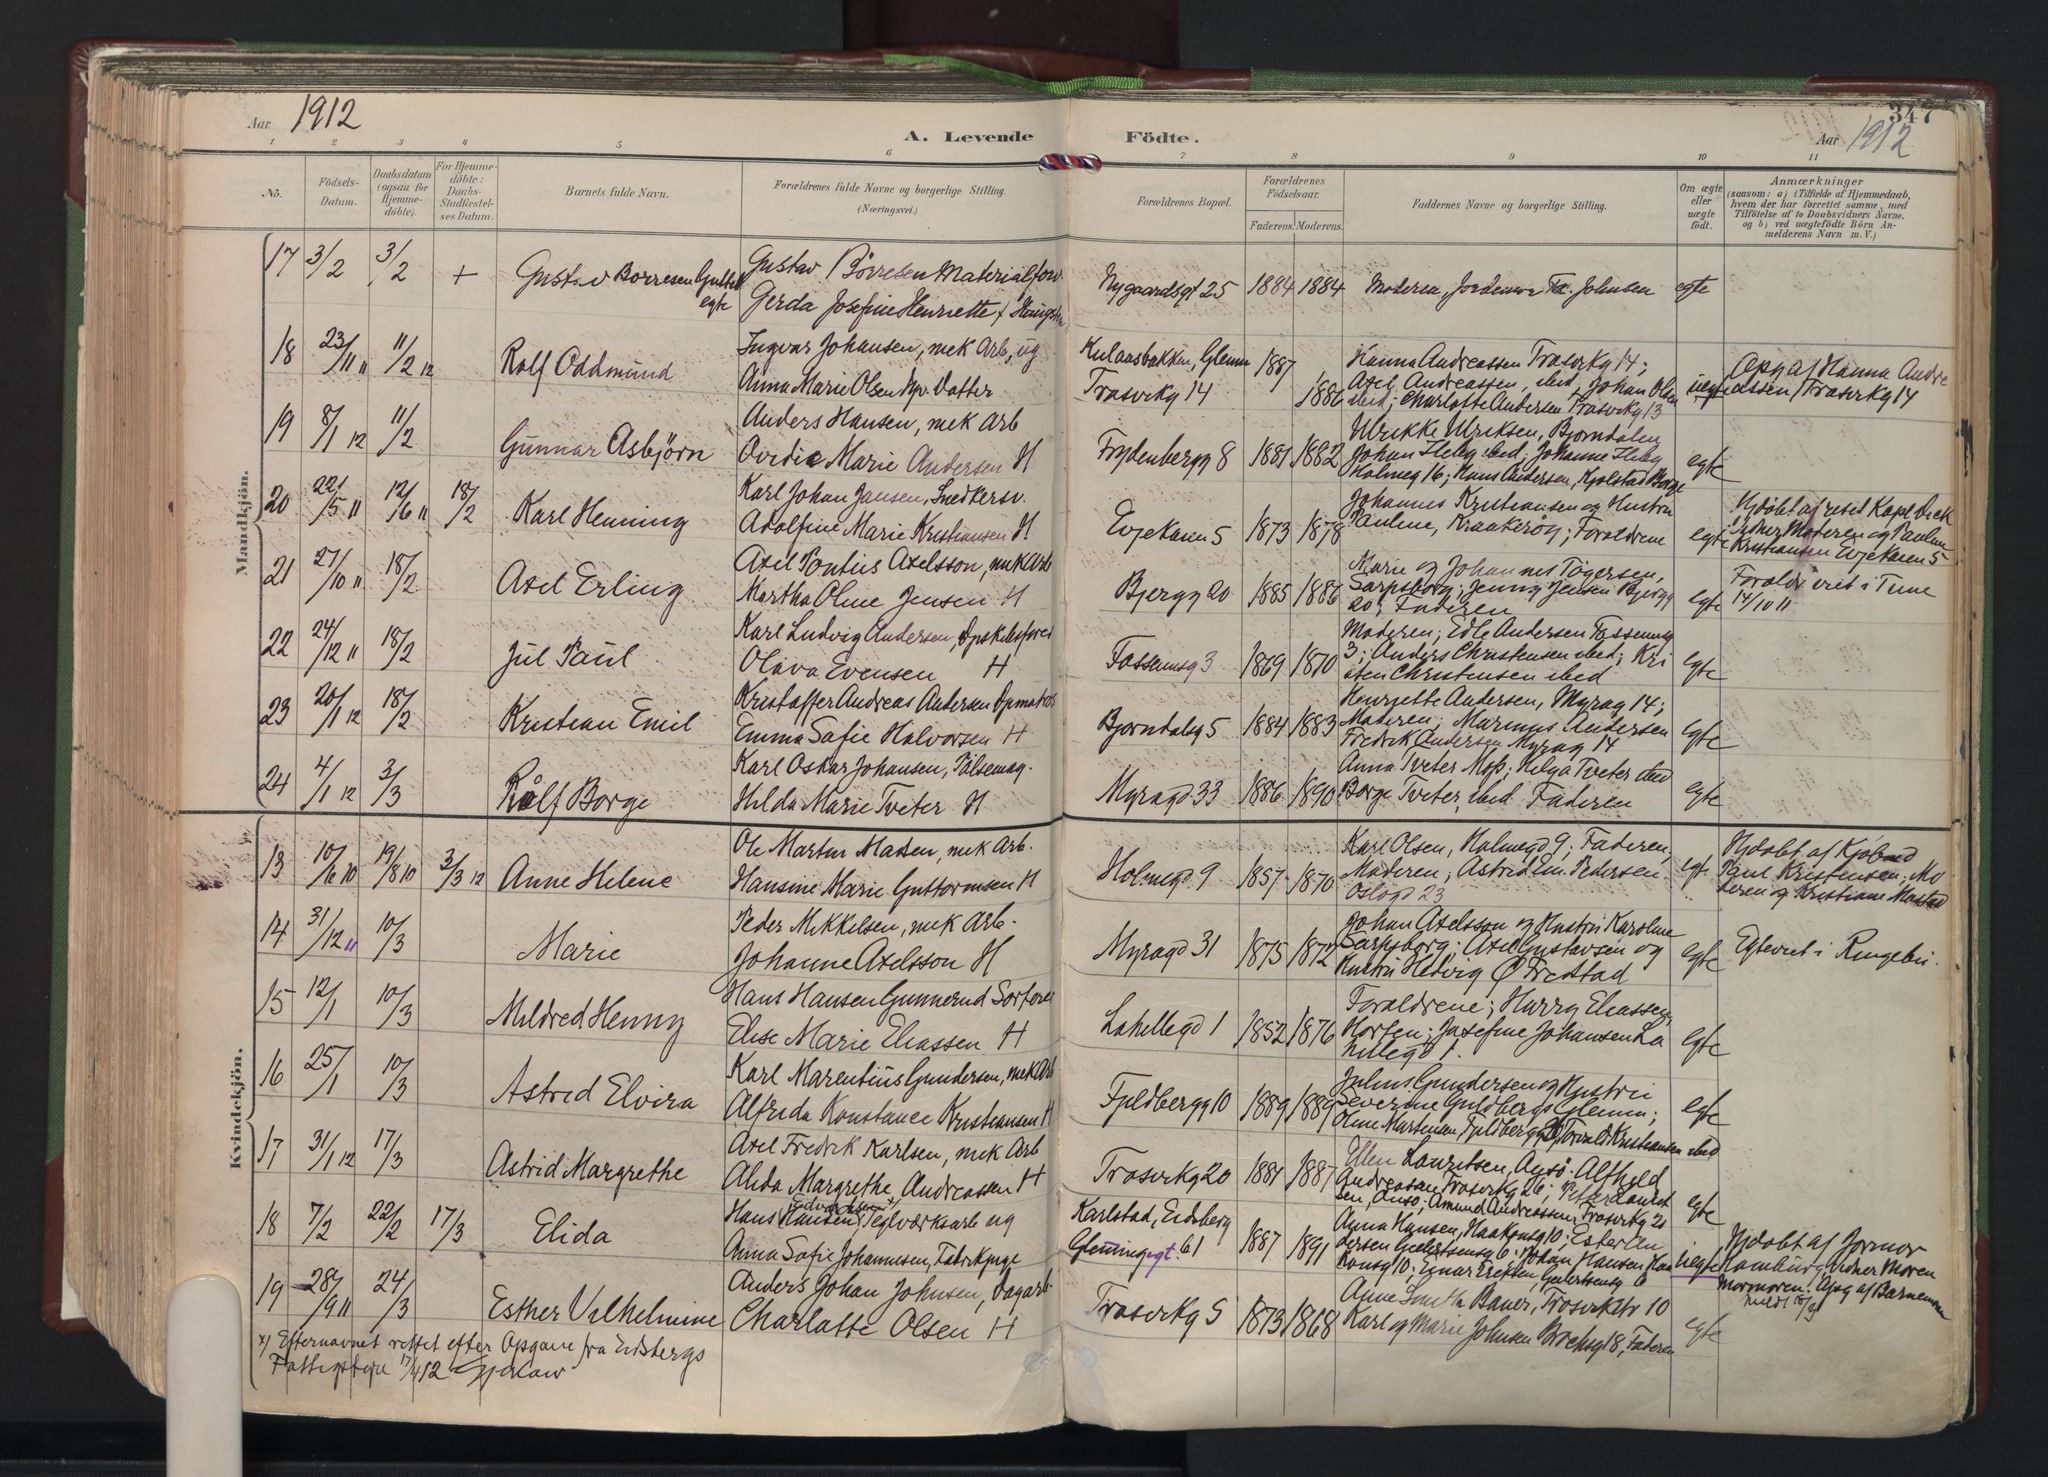 347
Aar 1912
A. Levende Födte.
Aar 1912
1 2 3 4 5 6 7 8 9 10 11
No.
Födsels-Datum.
Daabsdatum (ogsaa for Hjemmedöbte).
For Hjemmedöbte: Daabs-Stadfæstelses Datum.
Barnets fulde Navn.
Forældrenes fulde Navne og borgerlige Stilling.
(Næringsvei.)
Forældrenes Bopæl.
Forældrenes Födselsaar.
Faderens. Moderens.
Faddernes Navne og borgerlige Stilling.
Om ægte eller uægte födt.
Anmærkninger
(saasom: a) i Tilfælde af Hjemmedaab,
hvem der har forrettet samme, med
Tilföielse af to Daabsvidners Navne.
og b) ved uægtefödte Börn Anmelderens Navn m. V.)
Mandkjön.
17 3/2 3/2 + Gustav Borresen
egte
Gustav Börresen Materialforv
Gerda Josefine Henriette
Nygaardsgt 25 1884 1884 Moderen, Jordemor Johnsen egte
18 23/11 11 11/2 12 Rolf Oddmund
Ingvar Johansen, mek Arb, ug
Anna Marie Olsen Datter
Glemm
Trosvikg 14
1887
1886
Hanna Andreassen Trosvikg 14;
Axel Andreassen, ibid; Johan Olsen
ibid; Charlotte Andersen Trosvikg 13
uegte
Opg af Hanna Andre
assen, Trosvikg 14
19 8/1 12 11/2 Gunnar Asbjörn
Anders Hansen, mek Arb
Ovidie Marie Andersen H
Frydenbergg 8 1881 1882
Ulrikke Ulriksen, Bjorndalen
Johan ibid; Johanne
Holmeg 16; Hans Andersen, Kjolstad Borge
egte
20 22/5 11 12/6 11 18/2 Karl Henning
Karl Johan Jansen, Snedkersv.
Adolfine Marie Kristiansen H
Evjekasen 5 1873 1878
Johannes Kristiansen og Hustru
Paulene, Krankerøy; Foraldrene
egte
Hjdöbt af Kapel
Vidner Moderen og
Kristiansen Evjekasen 5
21 27/10 11 18/2 Axel Erling
Axel Pontus Axelsson, mek Arb
Martha Oline Jensen H
Bjergg 20 1885 1886
Marie og Johannes Tögersen,
Sarpsborg; Jenny Jensen Bjergg
20; Faderen
egte
Foraldr viet i Tune
14/10 11
22 24/12 11 18/2 Jul Paul
Karl Ludvig Andersen,
Olava Evensen H
Fossumsg 3 1869 1870
Moderen; Edle Andersen Fossumsg
3; Anders Christensen ibid; Kri
sten Christensen ibid
egte
23 20/1 12 18/2 Kristian Emil
Kristoffer Andreas Andersen Opmatros
Emma Sofie Halvorsen H
Bjorndalsg 5 1884 1883
Henriette Andersen, Myrag 14;
Moderen; Marinus Andersen
Fredrik Andersen Myrag 14
egte
24 4/1 12 3/3 Rolf Borge
Karl Oskar Johansen, Pölsemag.
Hilda Marie Tveter H
Myragd 33 1886 1890
Anna Tveter Moss; Helga Tveter ibid
Borge Tveter, ibid Faderen
egte
Kvindekjön.
13 10/6 10 19/8 10 3/3 12 Anne Helene
Ole Martin Madsen, mek Arb.
Hansine Marie Guttormsen H
Holmegd 9 1857 1870
Karl Olsen, Holmegd 9; Faderen,
Moderen; Astrid Em. Pedersen
Oslogd 23
egte
Hjdöbt af Kjöbmd
Paul Kristensen; Mo
deren og Kristiane
14 31/12 11 10/3 Marie
Peder Mikkelsen, mek Arb.
Johanne Axelsson H
Myragd 31 1875 1872
Johan Axelsson og Hustru Karoline
Sarpsborg; Axel Gustavsen og
Hustru Hedvig Ø Fredstad
egte
Egteviet i Ringebu.
15 12/1 10/3 Mildred Henny
Hans Hansen Gunnerud Sorterer
Elise Marie Eliassen H
Lahellegd 1 1852 1876
Foraldrene; Harry Eliassen,
Horten; Josefine Johansen La
hellegd 1.
egte
16 25/1 10/3 Astrid Elvira
Karl Marentius Gundersen, mek Arb
Alfrida Konstance Kristiansen H
Fjeldbergg 10 1889 1889
Julius Gundersen og Hustru
Severine Guldbergs Glemm;
Oline Martensen Fjeldbergg Torvald Kristiansen ibid
egte
17 31/1 12 17/3 Astrid Margrethe
Axel Fredrik Karlsen, mek Arb
Alida Margrethe Andreassen H
Trosvikg 20 1884 1887
Ellen Lauritsen, Onsö; Althild
Andreassen Trosvikg 26; Peter Laurit
sen, Onsö; Amund Andreassen, Trosvikg 20
egte
18 7/2 22/2 17/3 Elida
Edvardsen x
Hans Hansen, Teglværksarb ug
Anna Sofie Johannesen, Fabrikpige
Karlstad, Eidsberg
Glemmegt. 61
1887 1891
Anna Hansen, Haakonsg 10; Ester An
dersen Geelertsensg 6; Johan Hansen Haa
konsg 10; Einar Geelertsensg 6
uegte
Hjdöbt af Jormor
Hamburg, Vidner Moren
Mormoren. Opg af Barnemor
19 28/9 11 24/3 Esther Vilhelmine
Anders Johan Johnsen, Dagarb.
Charlotte Olsen H
Trosvikg 5 1873 1868
Anne Smith Bauer, Trosvikstr 10
Karl og Marie Johnsen 18, Faderen
egte
x) Efternavnet rettet efter Opgave fra Eidsbergs
Fattigstyre 17/4 12